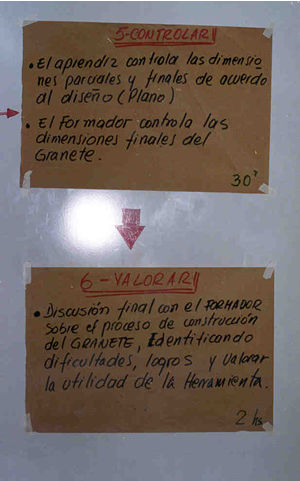 5-CONTROLAR
• El aprendiz controla las dimensio
nes parciales y finales de acuerdo
al diseño (Plano)
• El Formador controla las
dimensiones finales del
Granete.
30'
6-VALORAR
• Discusión final con el FORMADOR
sobre el proceso de construcción
del GRANETE, Identificando
dificultades, logros y valorar
la utilidad de la Herramienta.
2 hs.